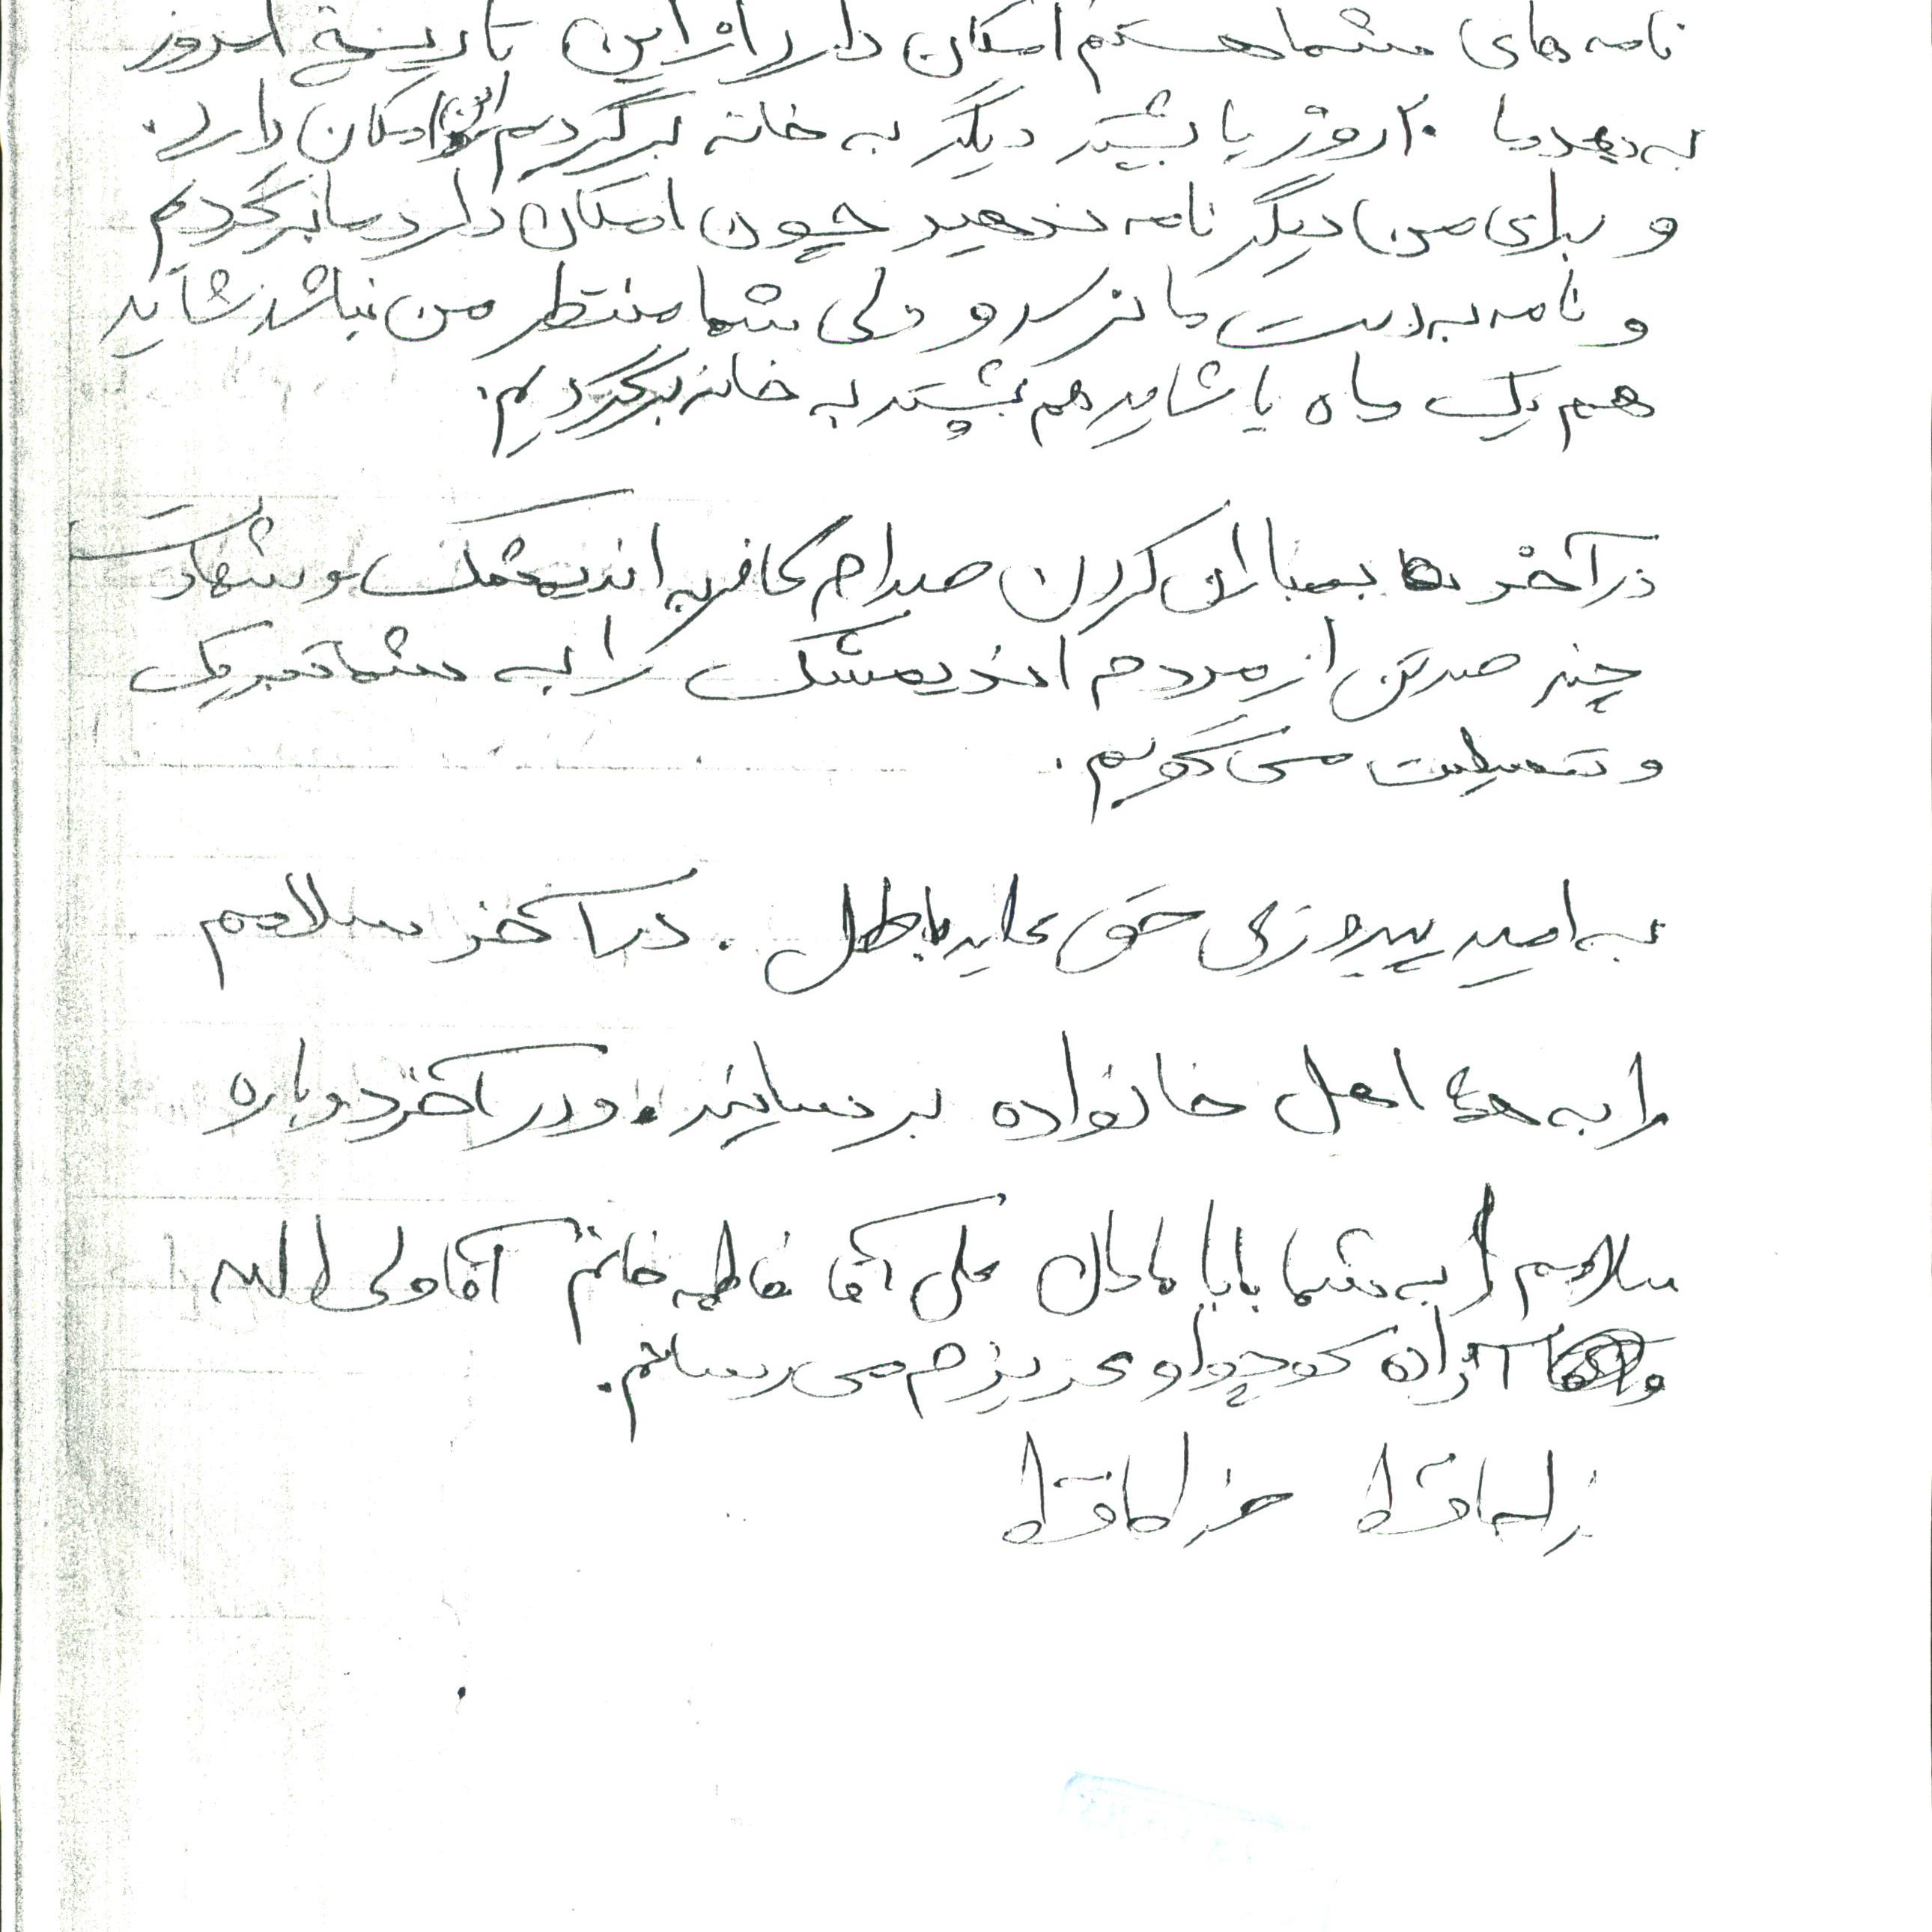 نامه های شما هستم امکان دارد از این تاریخ امروز
به بعد ما ۲۰ روز یا بیشتر دیگر به خانه برگردیم این امکان دارد.
و برای من دیگر نامه ندهید چون امکان دارد ما برگردیم
و نامه بدست ما نرسد و ولی شما منتظر من نباشید شاید
هم یک ماه یا شاید هم بیشتر به خانه برگردیم.
در آخر بمباران کردن صدام کافر به اندیمشک و شهادت
چند صد تن از مردم اندیمشک را به شما تبریک
و تسلیت می گویم.
به امید پیروزی حق علیه باطل. در آخر سلامم
را به همه اهل خانواده برسانید. و در آخر دوباره
سلامم را به شما بابا مامان علی آقا فاطمه خانم آقا ولی الله
و آزاده کوچولو عزیزم می رسانم.
خداحافظ